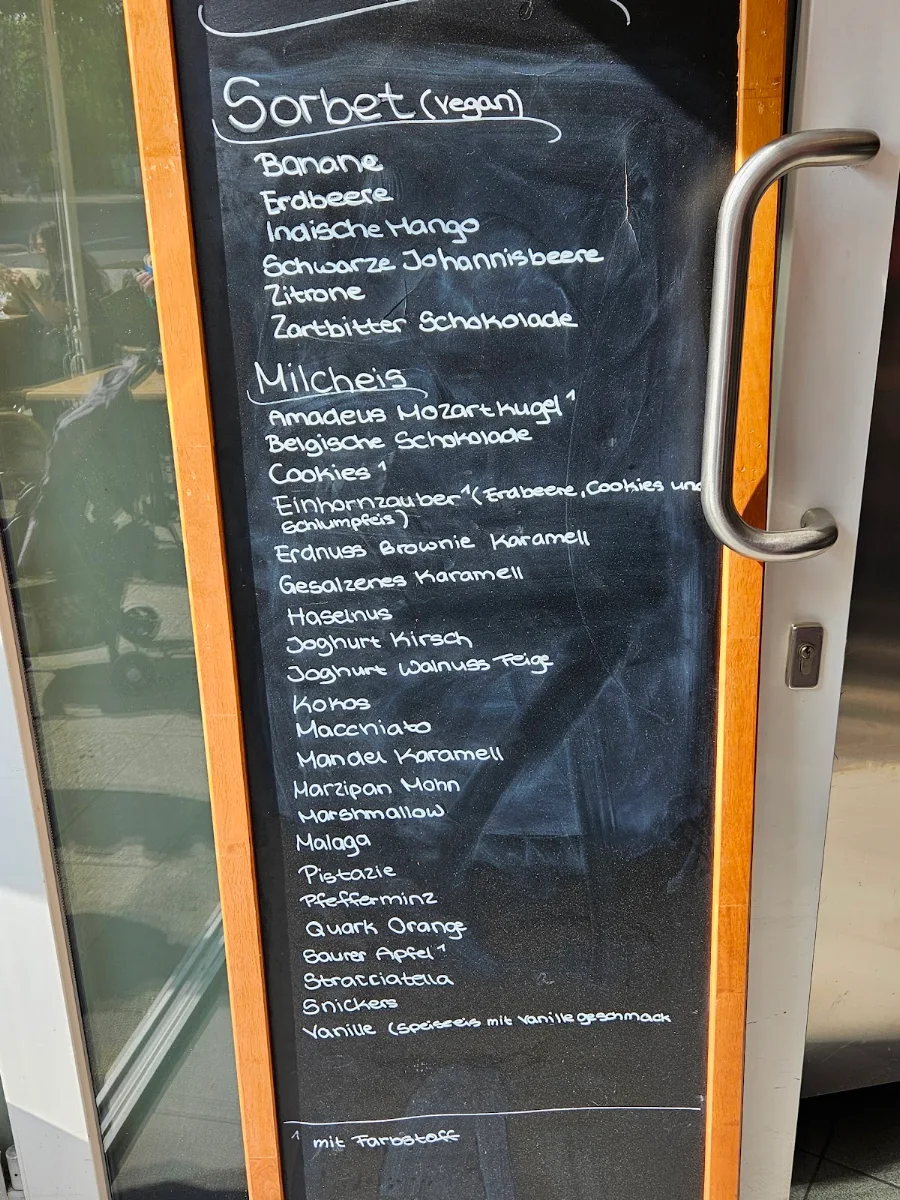 Sorbet (vegan)
Banane
Erdbeere
Indische Mango
Schwarze Johannisbeere
Zitrone
Zartbitter Schokolade
Milcheis
Amadeus Mozartkugel ¹
Belgische Schokolade
Cookies ¹
Einhornzauber ¹ (Erdbeere, Cookies und
Schlumpfeis)
Erdnuss Brownie Karamell
Gesalzenes Karamell
Haselnus
Joghurt Kirsch
Joghurt Walnuss Feige
Kokos
Macchiato
Mandel Karamell
Marzipan Mohn
Marshmallow
Malaga
Pistazie
Pfefferminz
Quark Orange
Saurer Apfel ¹
Stracciatella
Snickers
Vanille (Speiseeis mit Vanillegeschmack
¹ mit Farbstoff